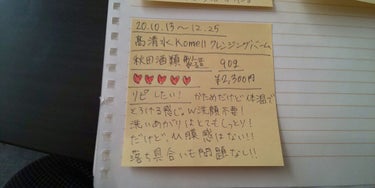 20.10.13〜12.25
高清水Komellクレンジングバーム
秋田酒類製造 90g
♥♥♥♥♥ ¥2,300円
リピしたい! かためだけど体温で
とろける感じ。W洗顔不要!
洗いあがりはとてもしっとり!
だけど、ひ膜感はない!!
落ち具合いも問題なし!!